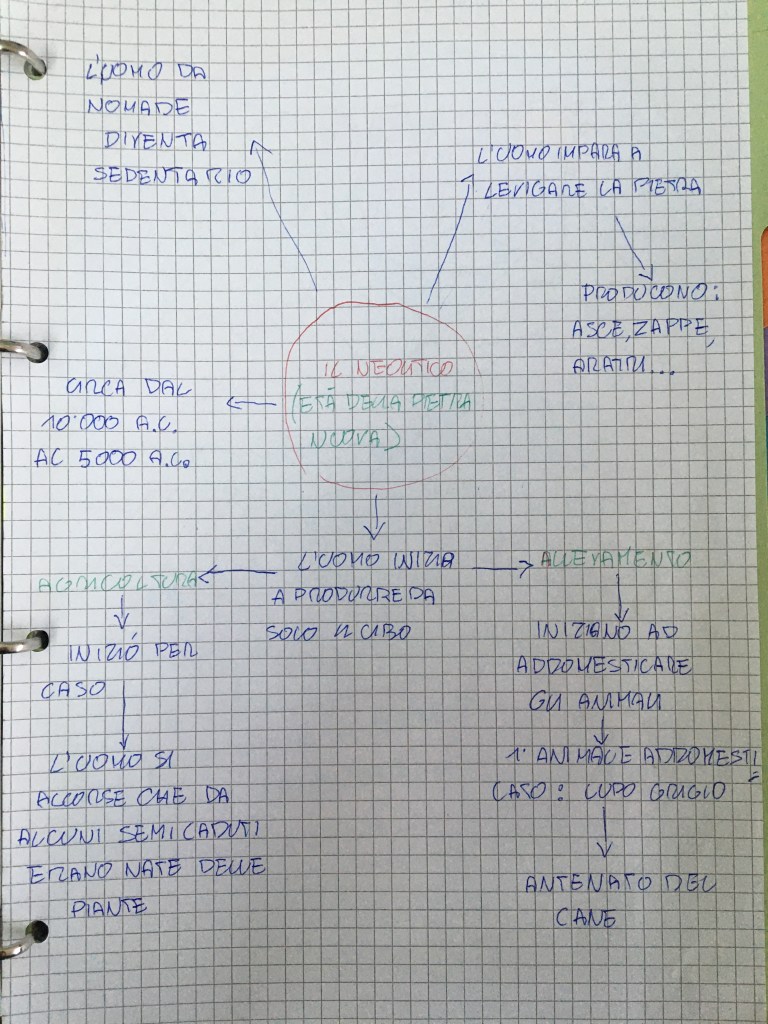 L'UOMO DA
NOMADE
DIVENTA
SEDENTARIO
L'UOMO IMPARA A
LEVIGARE LA PIETRA
PRODUCONO:
ASCE, ZAPPE,
ARATRI...
IL NEOLITICO
(ETÁ DELLA PIETRA
NUOVA)
CIRCA DAL
10.000 A.C.
AL 5000 A.C.
L'UOMO INIZIA
A PRODURRE DA
SOLO IL CIBO
AGRICOLTURA
INIZIÓ PER
CASO
L'UOMO SI
ACCORSE CHE DA
ALCUNI SEMI CADUTI
ERANO NATE DELLE
PIANTE
ALLEVAMENTO
INIZIANO AD
ADDOMESTICARE
GLI ANIMALI
1° ANIMALE ADDOMESTI
CATO: LUPO GRIGIO
ANTENATO DEL
CANE